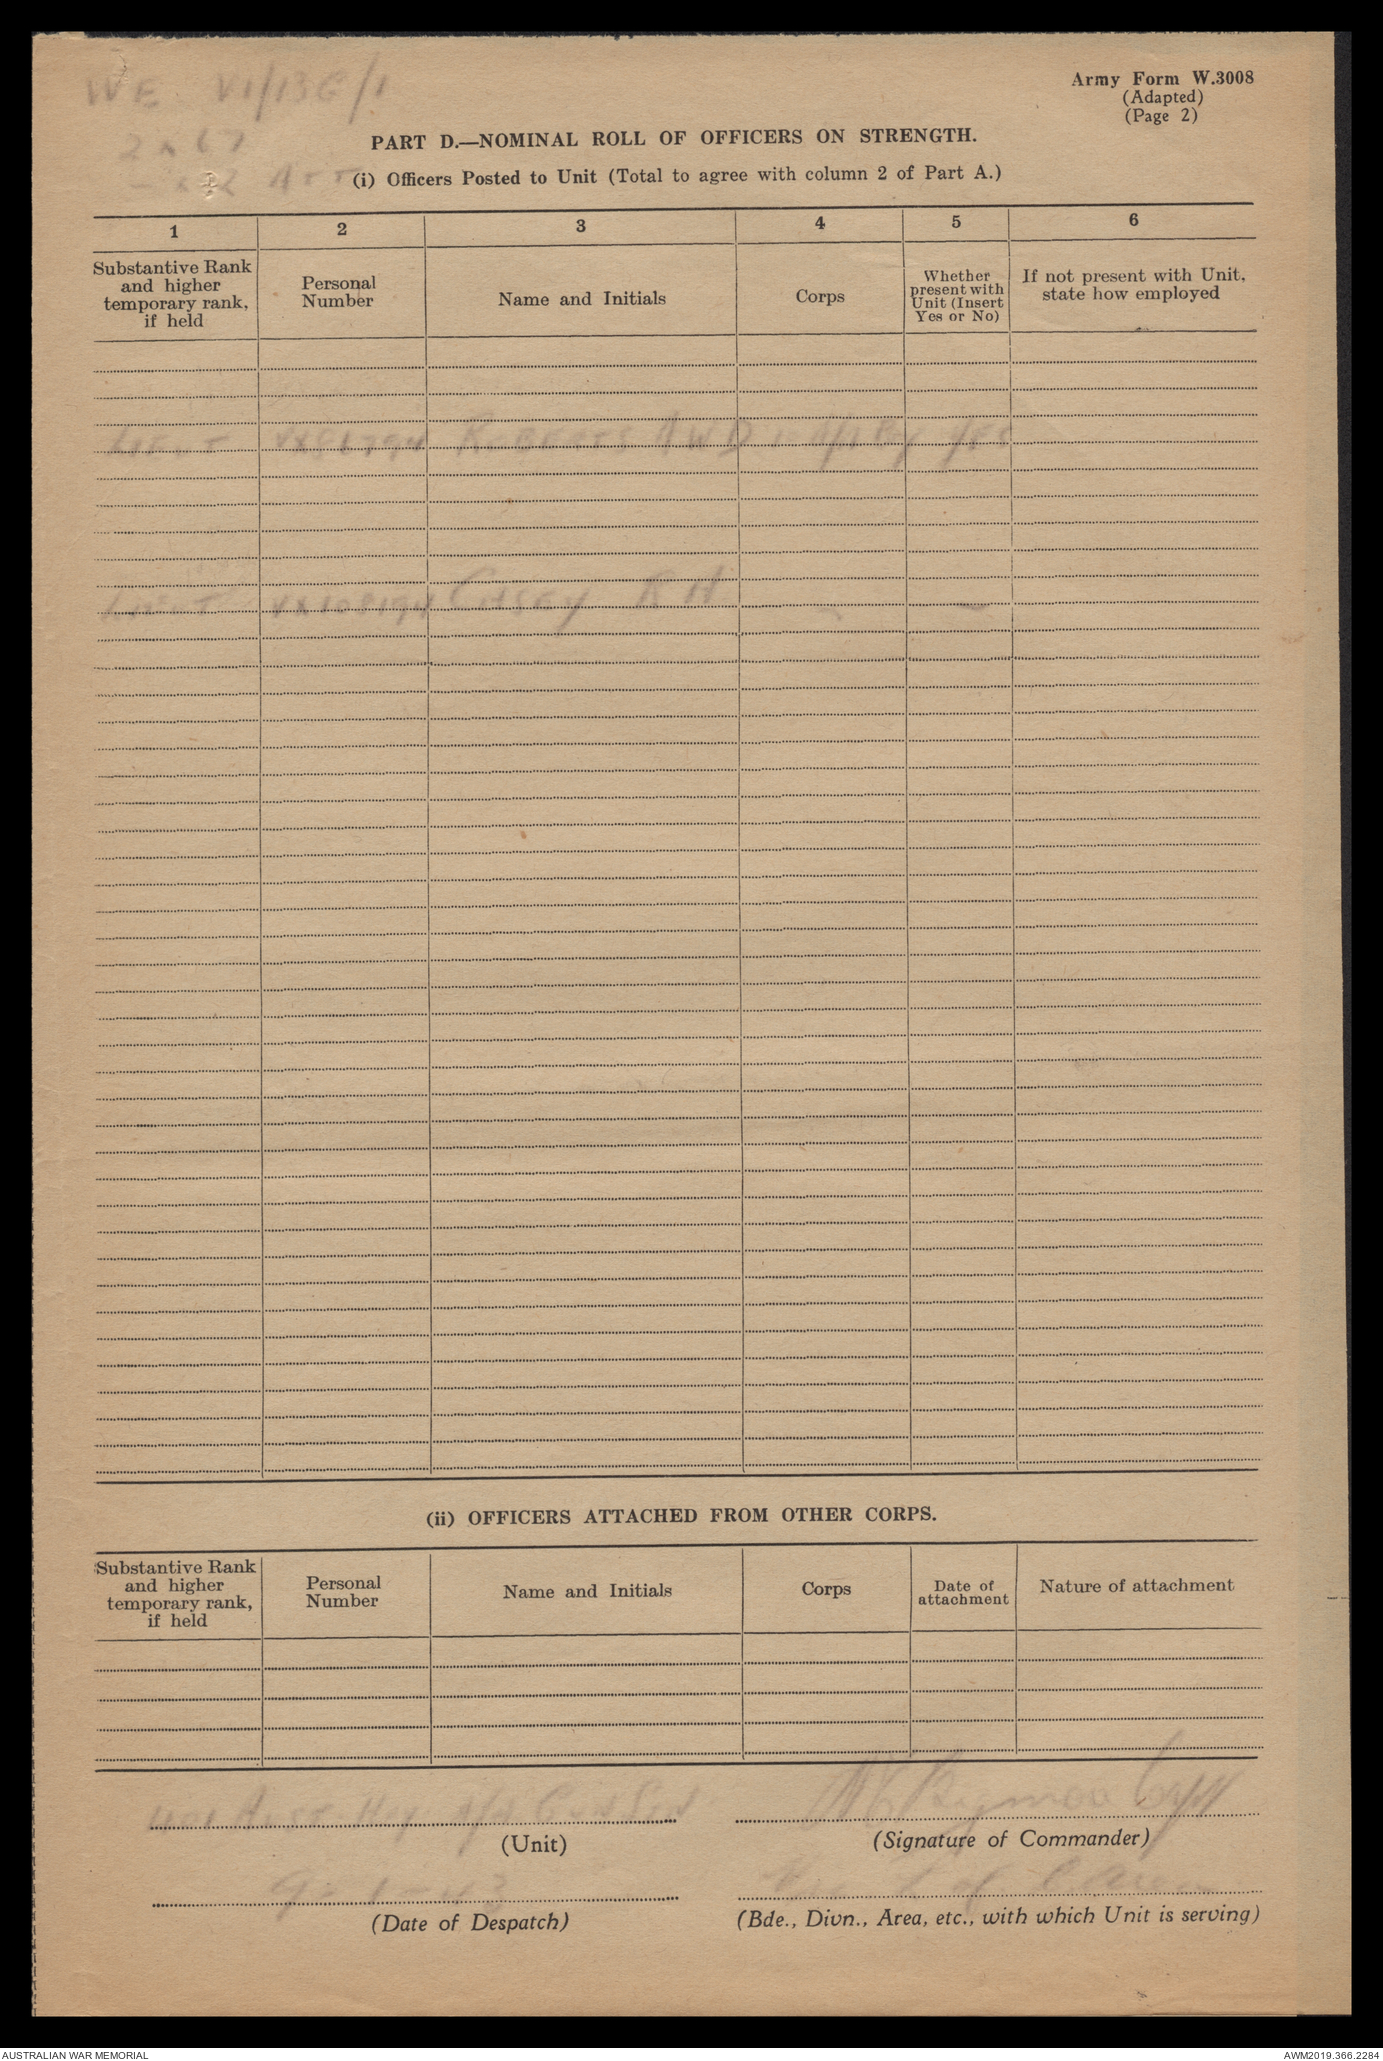 WE VI/13G/1
Army Form W.3008
(Adapted)
(Page 2)
PART D.—NOMINAL ROLL OF OFFICERS ON STRENGTH.
(i) Officers Posted to Unit (Total to agree with column 2 of Part A.)
1 2 3 4 5 6
Substantive Rank and higher temporary rank, if held
Personal Number
Name and Initials
Corps
Whether present with Unit (Insert Yes or No)
If not present with Unit, state how employed
Lieut Roberts A W D Yes
Lieut VX108194 Casey R H
(ii) OFFICERS ATTACHED FROM OTHER CORPS.
Substantive Rank and higher temporary rank, if held
Personal Number
Name and Initials
Corps
Date of attachment
Nature of attachment
Aust Hvy
(Unit)
(Signature of Commander)
(Date of Despatch)
(Bde., Divn., Area, etc., with which Unit is serving)
AUSTRALIAN WAR MEMORIAL
AWM2019.366.2284